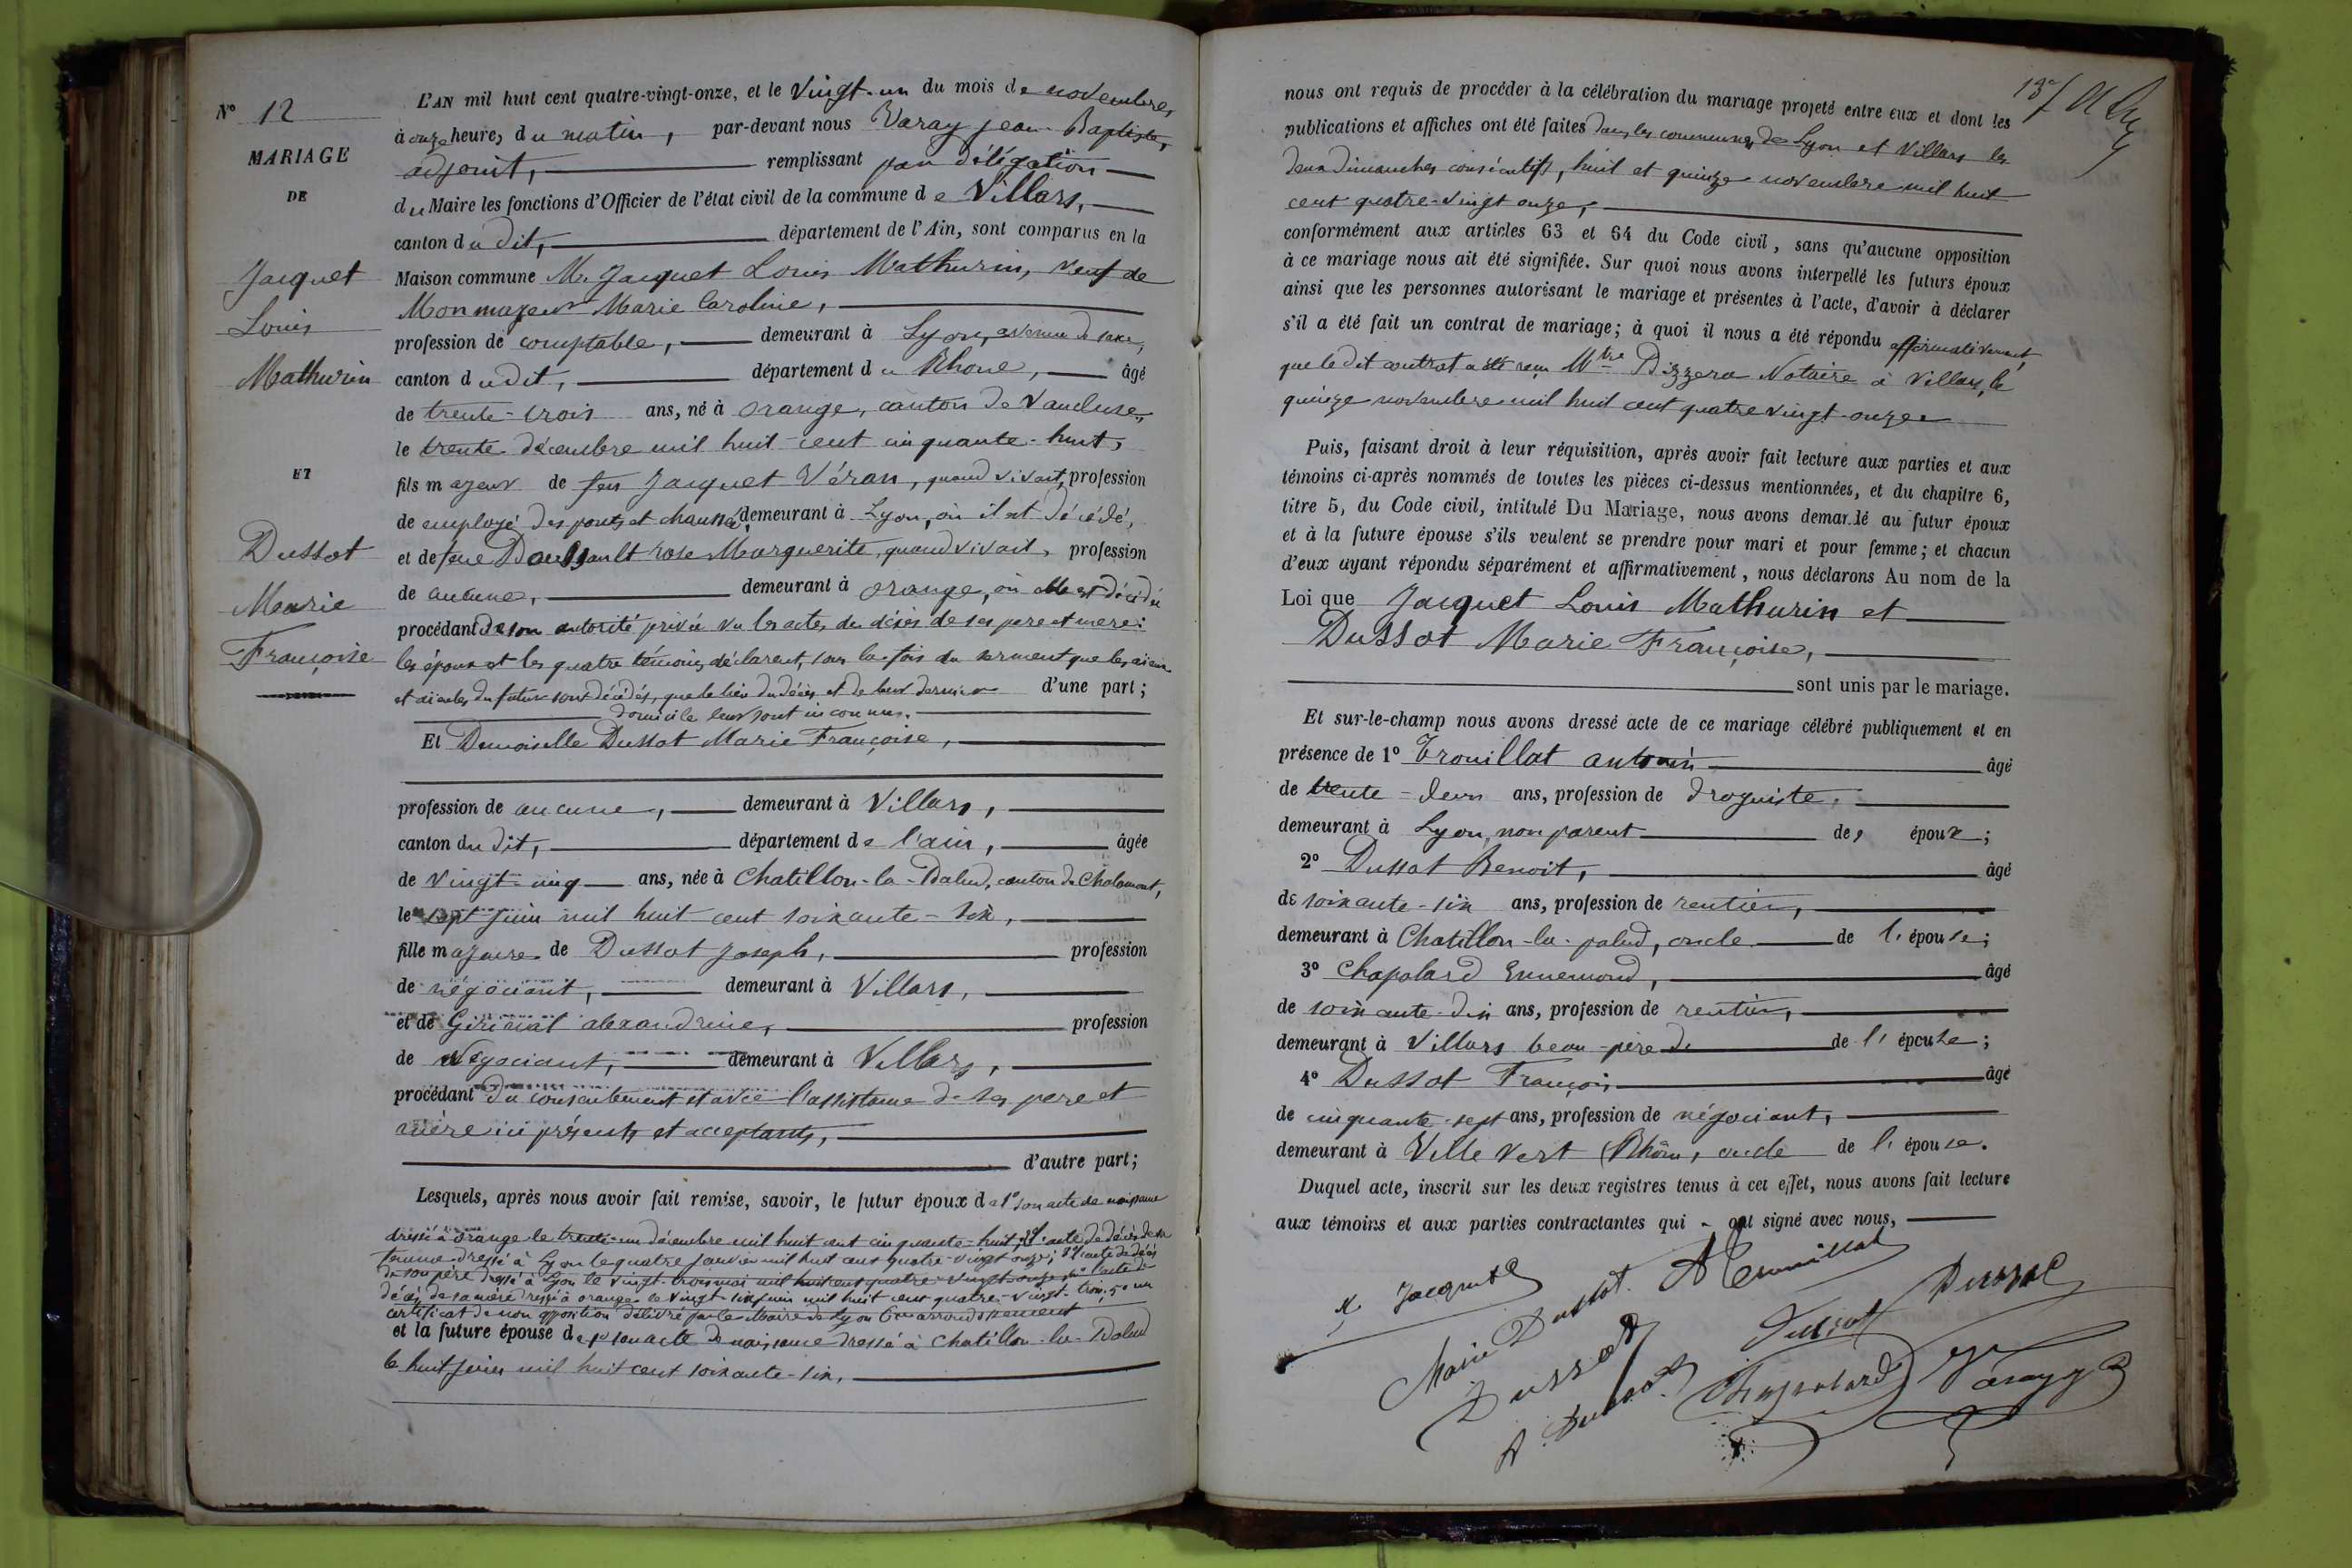 N° 12
MARIAGE
DE
Jacquet
Louis
Mathurin
ET
Dussot
Marie
Françoise
L'AN mil huit cent quatre-vingt-onze, et le vingt-un du mois de novembre,
à onze heures du matin, par-devant nous Varay Jean-Baptiste,
adjoint, remplissant par délégation
du Maire les fonctions d'Officier de l'état civil de la commune de Villars,
canton dudit, département de l'Ain, sont comparus en la
Maison commune Mr Jacquet Louis Mathurin, veuf de
Monmayeur Marie Caroline,
profession de comptable, demeurant à Lyon, avenue de saxe,
canton dudit, département du Rhone, âgé
de trente-trois ans, né à orange, canton de Vaucluse,
le trente décembre mil huit cent cinquante-huit,
fils majeur de feu Jacquet Véran, quand vivait, profession
de employé des ponts et chaussés, demeurant à Lyon, où il est décédé,
et de feue rose Marguerite, quand vivait, profession
de aucune, demeurant à orange, où elle est décédée
procédant de son autorité privée vu les actes de décès de ses pere et mere:
les époux et les quatre témoins déclarent, sous la fois du serment que les aieux
et aieules du futur sont décédés, que le lieu du décès et de leur dernier d'une part;
domicile leur sont inconnus.
Et Demoiselle Dussot Marie Françoise,
profession de aucune, demeurant à Villars,
canton dudit, département de l'ain, âgée
de vingt-cinq ans, née à Chatillon-la-Palud, canton de Chalamont,
le sept juin mil huit cent soixante-six,
fille majeure de Dussot Joseph, profession
de négociant, demeurant à Villars,
et de alexandrine, profession
de Négociant, demeurant à Villars,
procédant du consentement et avec l'assistance de ses pere et
mère ici présents et acceptants,
d'autre part;
Lesquels, après nous avoir fait remise, savoir, le futur époux de 1° son acte de naissance
dressé à orange le trente-un décembre mil huit cent cinquante-huit; 2° l'acte de décès de sa
femme dressé à Lyon le quatre janvier mil huit cent quatre-vingt onze; 3° l'acte de décès
de son père dressé à Lyon le vingt-trois mai mil huit cent quatre-vingt-onze; 4° l'acte de
décès de sa mère dressé à orange le vingt-six juin mil huit cent quatre-vingt-trois; 5° un
certificat de non opposition délivré par le Maire de Lyon 6me arrondissement
et la future épouse de 1° son acte de naissance dressé à Chatillon-la-Palud
le huit juin mil huit cent soixante-six,
13
nous ont requis de procéder à la célébration du mariage projeté entre eux et dont les
publications et affiches ont été faites dans les communes de Lyon et Villars les
deux dimanches consécutifs, huit et quinze novembre mil huit
cent quatre-vingt onze,
conformément aux articles 63 et 64 du Code civil, sans qu'aucune opposition
à ce mariage nous ait été signifiée. Sur quoi nous avons interpellé les futurs époux
ainsi que les personnes autorisant le mariage et présentes à l'acte, d'avoir à déclarer
s'il a été fait un contrat de mariage; à quoi il nous a été répondu affirmativement,
que le dit contrat a été reçu Mtre Pizzera Notaire à Villars, le
quinze novembre mil huit cent quatre vingt-onze
Puis, faisant droit à leur réquisition, après avoir fait lecture aux parties et aux
témoins ci-après nommés de toutes les pièces ci-dessus mentionnées, et du chapitre 6,
titre 5, du Code civil, intitulé Du Mariage, nous avons demandé au futur époux
et à la future épouse s'ils veulent se prendre pour mari et pour femme; et chacun
d'eux ayant répondu séparément et affirmativement, nous déclarons Au nom de la
Loi que Jacquet Louis Mathurin et
Dussot Marie Françoise,
sont unis par le mariage.
Et sur-le-champ nous avons dressé acte de ce mariage célébré publiquement et en
présence de 1° Trouillat antonin âgé
de trente-deux ans, profession de droguiste,
demeurant à Lyon, non parent des époux;
2° Dussot Benoit, âgé
de soixante-six ans, profession de rentier,
demeurant à Chatillon-la-palud, oncle de l'épouse;
3° Chapolard Ennemond, âgé
de soixante-dix ans, profession de rentier,
demeurant à Villars beau-père de de l'épouse;
4° Dussot François âgé
de cinquante-sept ans, profession de négociant,
demeurant à Ville Vert (Rhône, oncle de l'épouse.
Duquel acte, inscrit sur les deux registres tenus à cet effet, nous avons fait lecture
aux témoins et aux parties contractantes qui ont signé avec nous,
Jacquet
Marie Dussot
A Trouillat
Dussot
Dussot
Dussot
A Dussot
Chapolard
Varay